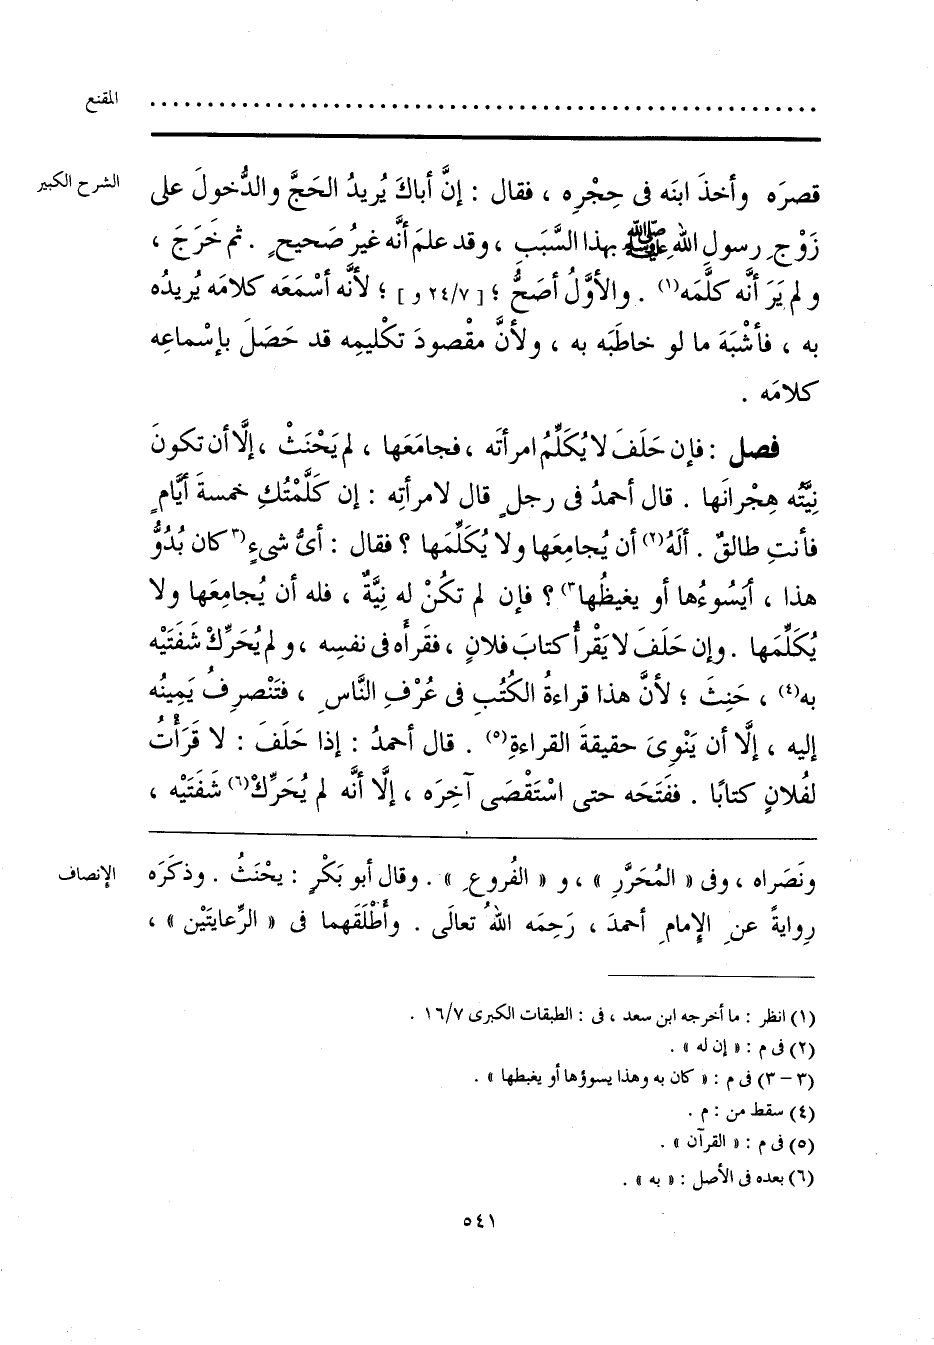 المقنع ........................................................
الشرح الكبير
قصرَه وأخذَ ابنَه فى حِجْرِه ، فقال : إنَّ أباكَ يُريدُ الحَجَّ والدُّخولَ على
زَوْجِ رسولِ اللهِ ﷺ بهذا السَّبَبِ ، وقد علمَ أنَّه غيرُ صَحيحٍ . ثم خَرَجَ ،
ولم يَرَ أنَّه كلَّمَه(١) . والأوَّلُ أصَحُّ ؛ [ ٢٤/٧ و ] ؛ لأنَّه أسْمَعَه كلامَه يُريدُه
به ، فأشْبَهَ ما لو خاطَبَه به ، ولأنَّ مقْصودَ تكْليمِه قد حَصَلَ بإسْماعِه
كلامَه .
فصل : فإن حَلَفَ لا يُكَلِّمُ امرأتَه ، فجامَعَها ، لم يَحْنَثْ ، إلَّا أن تكونَ
نِيَّتُه هِجْرانَها . قال أحمدُ فى رجلٍ قال لامرأتِه : إن كَلَّمْتُكِ خمسةَ أيَّامٍ
فأنتِ طالقٌ . ألَهُ(٢) أن يُجامِعَها ولا يُكَلِّمَها ؟ فقال : أىُّ شىءٍ (٣كان بُدُوُّ
هذا ، أيَسُوءُها أو يغيظُها٣) ؟ فإن لم تكُنْ له نِيَّةٌ ، فله أن يُجامِعَها ولا
يُكَلِّمَها . وإن حَلَفَ لا يَقْرأُ كتابَ فلانٍ ، فقَرأَه فى نفسِه ، ولم يُحَرِّكْ شَفَتَيْه
به(٤) ، حَنِثَ ؛ لأنَّ هذا قراءةُ الكُتُبِ فى عُرْفِ النَّاسِ ، فتَنْصرِفُ يَمِينُه
إليه ، إلَّا أن يَنْوِىَ حقيقةَ القراءةِ(٥) . قال أحمدُ : إذا حَلَفَ : لا قَرَأْتُ
لفُلانٍ كتابًا . ففَتَحَه حتى اسْتَقْصَى آخِرَه ، إلَّا أنَّه لم يُحَرِّكْ(٦) شَفَتَيْه ،
الإنصاف
ونَصَراه ، وفى « المُحَرَّرِ » ، و « الفُروعِ » . وقال أبو بَكْرٍ : يحْنَثُ . وذكَرَه
رِوايةً عنِ الإمامِ أحمدَ ، رَحِمَه اللهُ تعالَى . وأَطْلَقَهما فى « الرِّعايتَيْن » ،
(١) انظر : ما أخرجه ابن سعد ، فى : الطبقات الكبرى ١٦/٧ .
(٢) فى م : « إن له » .
(٣ – ٣) فى م : « كان به وهذا يسوؤها أو يغبطها » .
(٤) سقط من : م .
(٥) فى م : « القرآن » .
(٦) بعده فى الأصل : « به » .
٥٤١